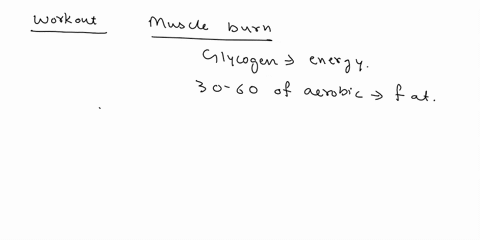 Workout Muscle burn
Glycogen → energy.
30-60 of aerobic → fat.